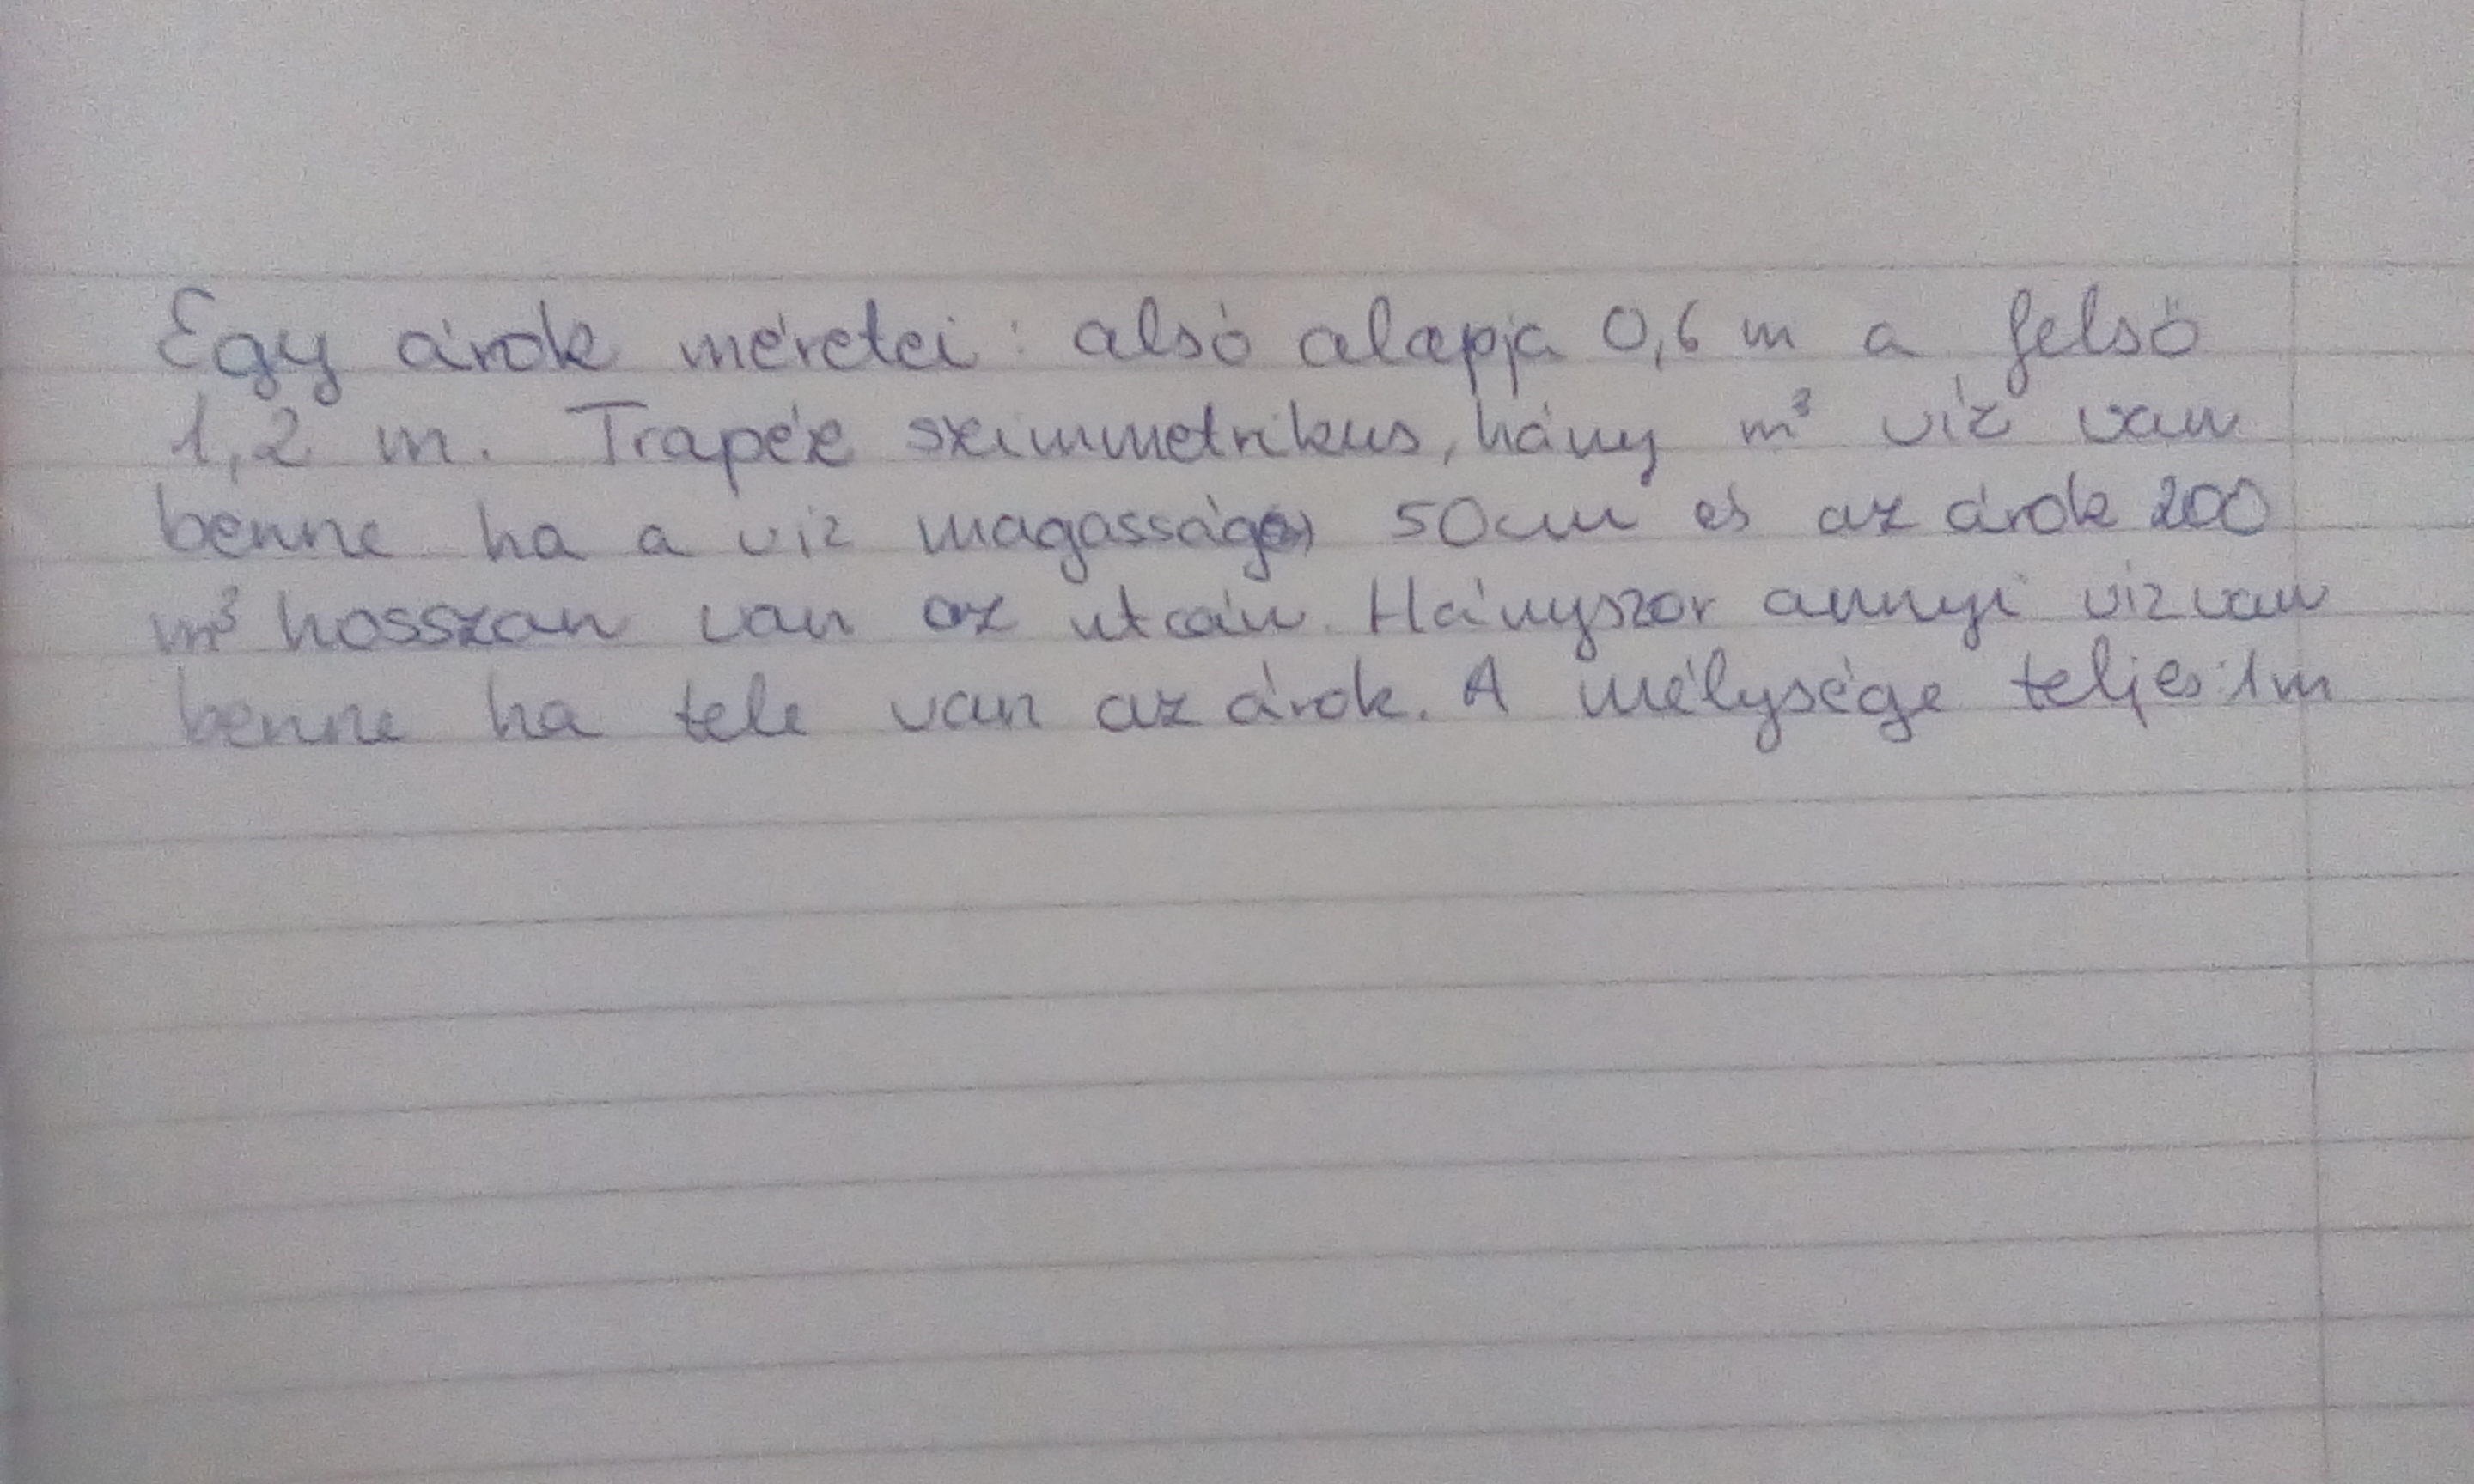 Egy árok méretei: alsó alapja 0,6 m a felső
1,2 m. Trapéz szimmetrikus, hány m³ víz van
benne ha a víz magassága 50cm és az árok 200
m³ hosszan van az utcán. Hányszor annyi víz van
benne ha tele van az árok. A mélysége teljes: 1m